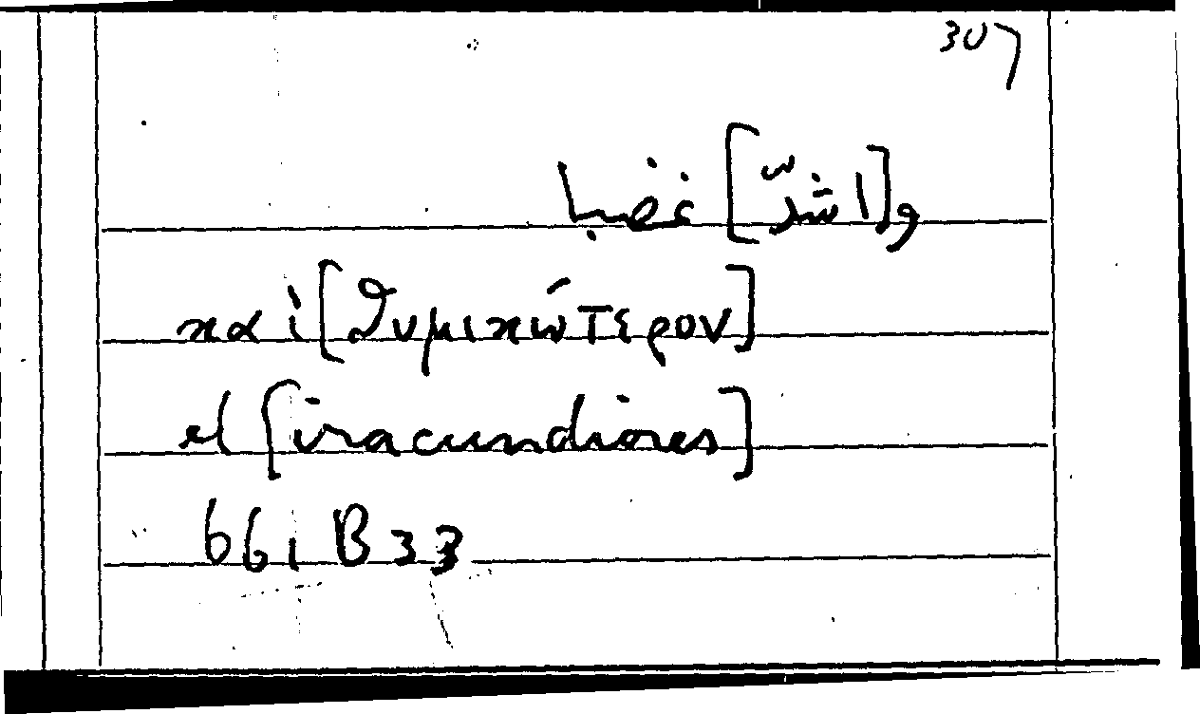 307
و[اشدّ] غضبا
καὶ [θυμικώτερον]
et [iracundiores]
661 B 33